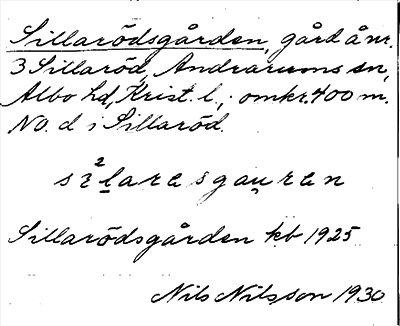 Sillarödsgården, gård å nr.
3 Sillaröd, Andrarums sn,
Albo hd, Krist. l.; omkr. 400 m.
NO. d i Sillaröd.
Sillarödsgården kb 1925
Nils Nilsson 1930